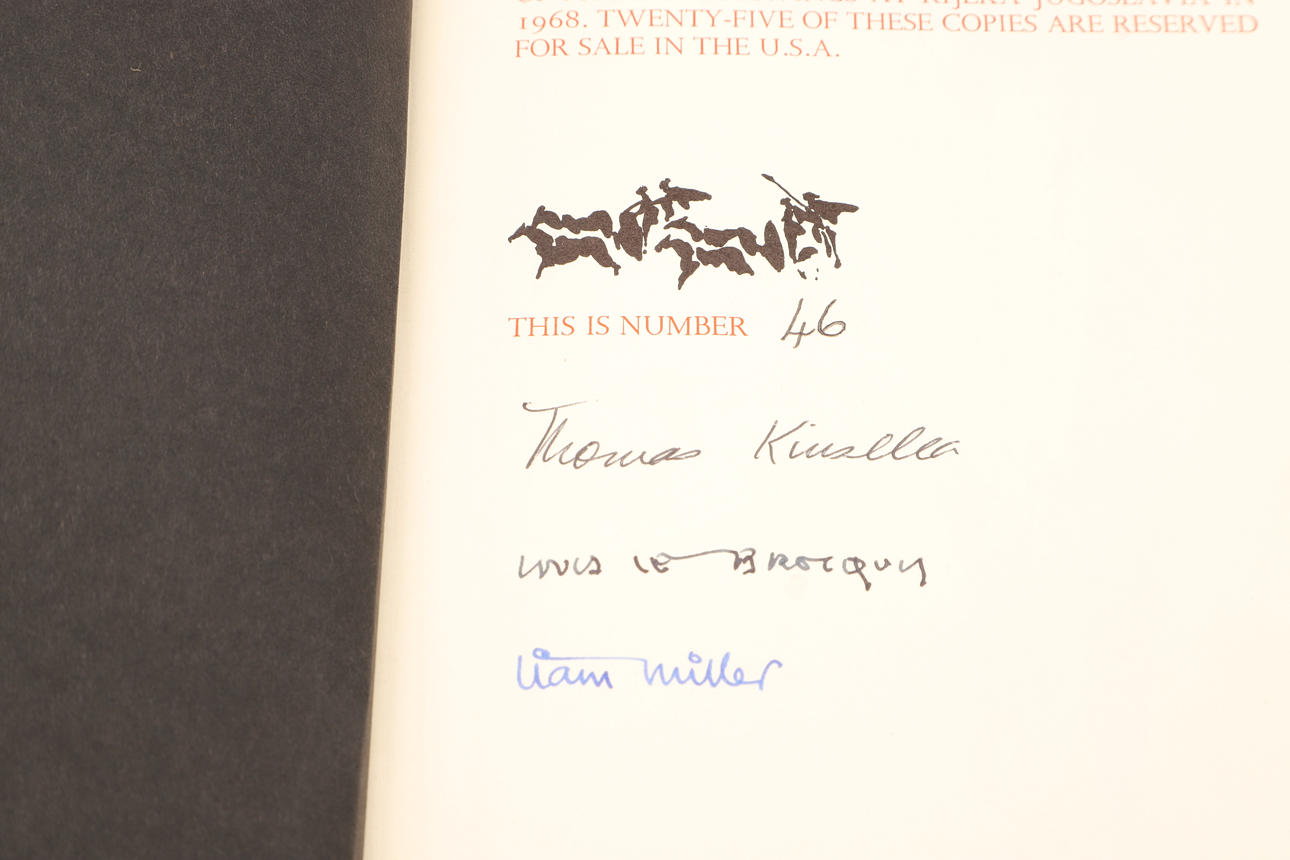 RIJEKA JUGOSLAVIA IN
1968. TWENTY-FIVE OF THESE COPIES ARE RESERVED
FOR SALE IN THE U.S.A.
THIS IS NUMBER 46
Thomas Kinsella
LOUIS LE BROCQUY
Liam Miller